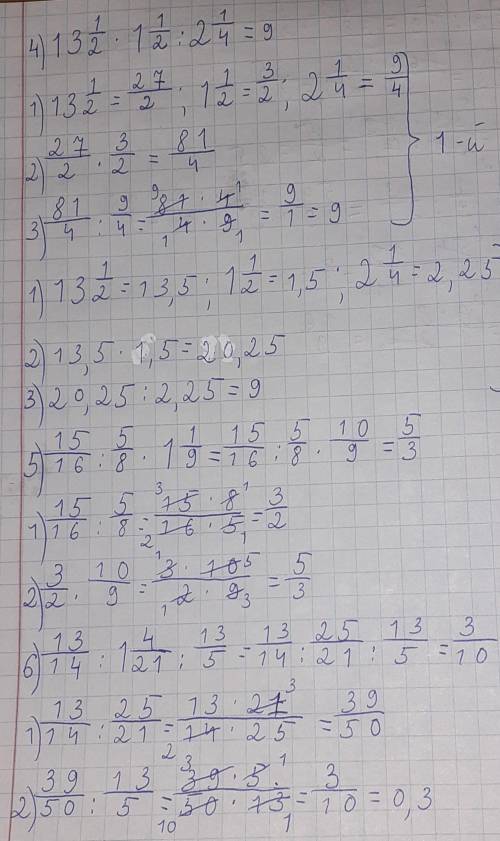 4) 13 1/2 · 1 1/2 : 2 1/4 = 9
1) 13 1/2 = 27/2 ; 1 1/2 = 3/2 ; 2 1/4 = 9/4
2) 27/2 · 3/2 = 81/4
1-й
3) 81/4 : 9/4 = 81 · 4 / 4 · 9 = 9/1 = 9
1) 13 1/2 = 13,5 ; 1 1/2 = 1,5 ; 2 1/4 = 2,25
2) 13,5 · 1,5 = 20,25
3) 20,25 : 2,25 = 9
5) 15/16 : 5/8 · 1 1/9 = 15/16 : 5/8 · 10/9 = 5/3
1) 15/16 : 5/8 = 15 · 8 / 16 · 5 = 3/2
2) 3/2 · 10/9 = 3 · 10 / 2 · 9 = 5/3
6) 13/14 : 1 4/21 : 13/5 = 13/14 : 25/21 : 13/5 = 3/10
1) 13/14 : 25/21 = 13 · 21 / 14 · 25 = 39/50
2) 39/50 : 13/5 = 39 · 5 / 50 · 13 = 3/10 = 0,3